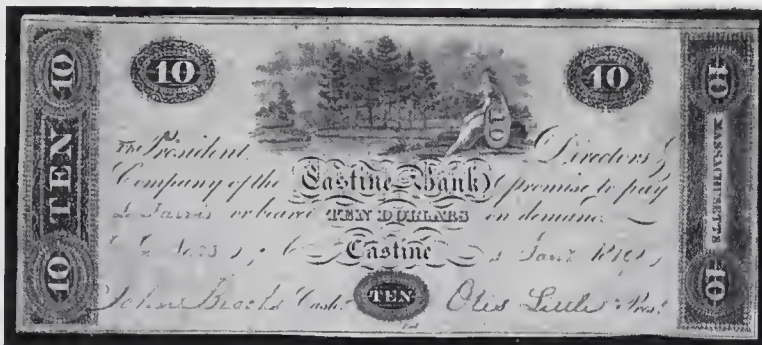 10 10
10
TEN
10
10
MASSACHUSETTS
10
10
The President, Directors &
Company of the Castine Bank promise to pay
or bearer TEN DOLLARS on demand
Castine
Cash. TEN Otis Little Prest.